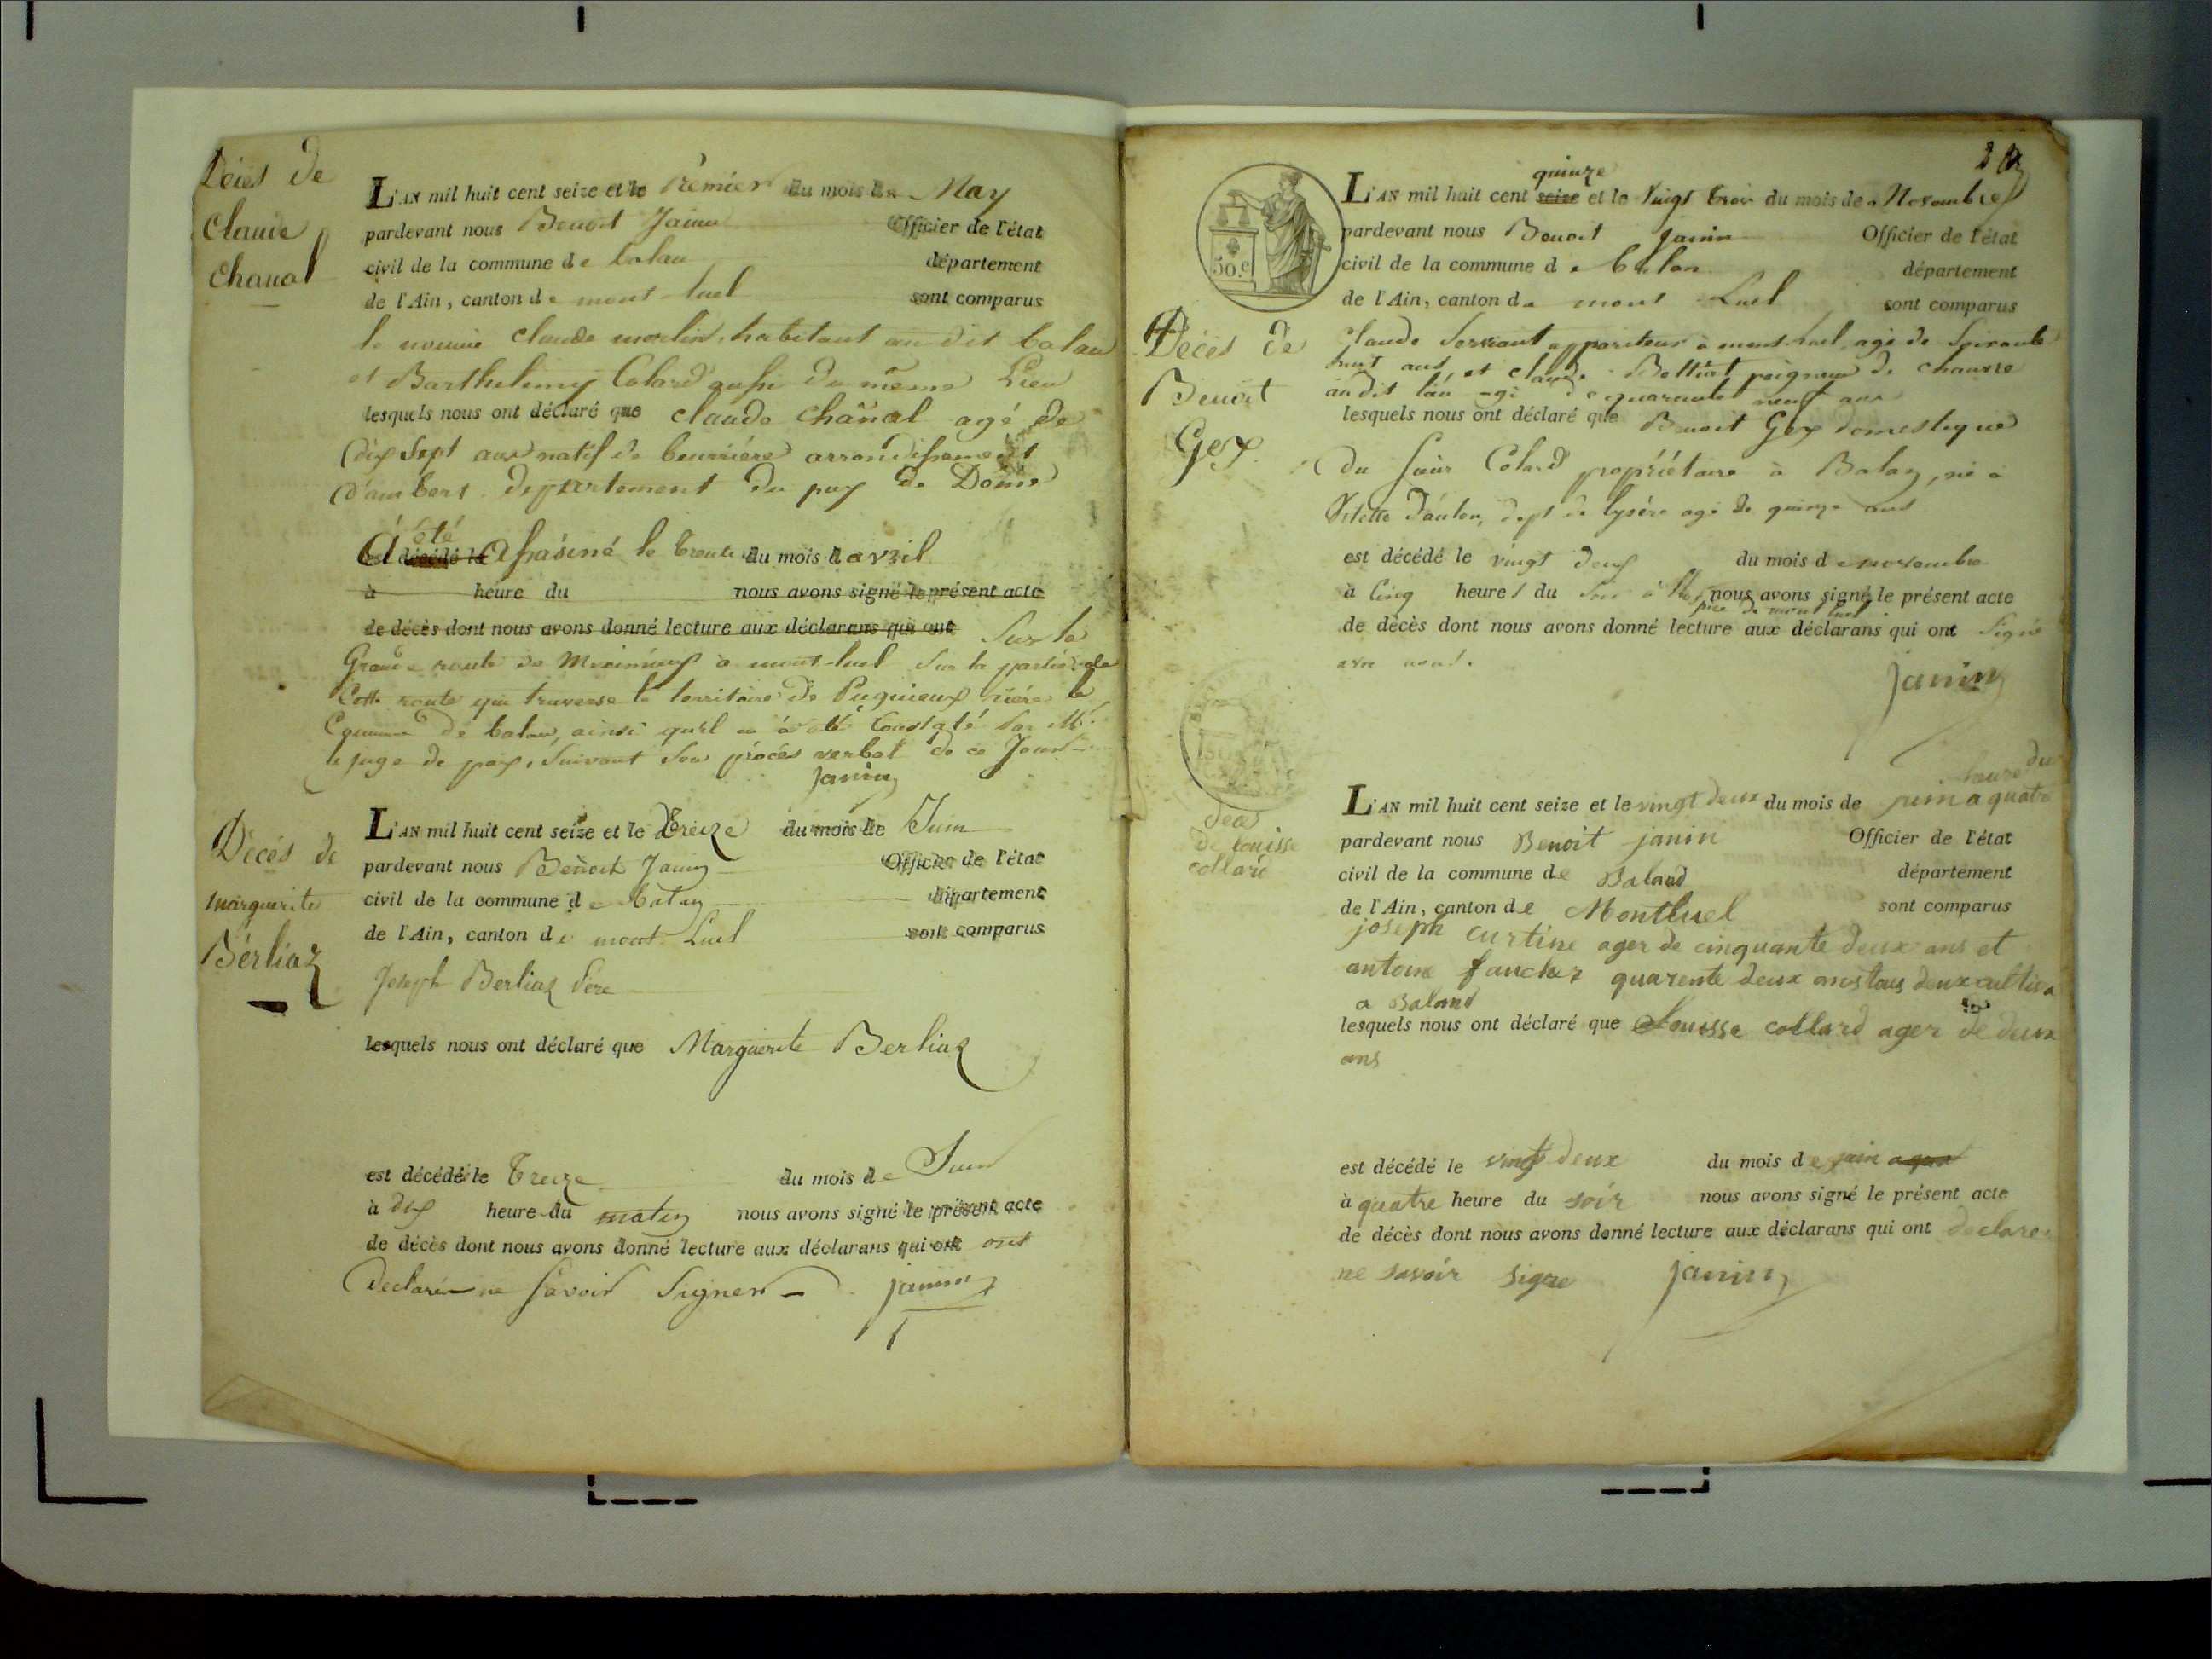 Décès de
Claude
Chanal
L'AN mil huit cent seize et le Premier du mois de May
pardevant nous Benoit Janin Officier de l'état
civil de la commune de balan département
de l'Ain, canton de mont-luel sont comparus
le nommé claude morlin, habitant au dit balan
et Barthelemy Colard aussi du même Lieu
lesquels nous ont déclaré que claude Chanal agé de
dix sept ans natif de beurriére arrondissement
d'ambert département du puy de Dome
A été
est décédé le assasiné le trente du mois d avril
à heure du nous avons signé le présent acte
de décès dont nous avons donné lecture aux déclarans qui ont Sur la
Grande route de Meximieux a mont-luel Sur la partie de
Cette route qui traverse le territoire de Pugnieux riére la
Commune de balan, ainsi qu'il a été Constaté par Mr
le juge de paix, Suivant Son procés verbal de ce Jour
Janin
Décés de
marguerite
Bérliaz
L'AN mil huit cent seize et le Treize du mois de Juin
pardevant nous Benoit Janin Officier de l'état
civil de la commune de balan département
de l'Ain, canton de mont Luel sont comparus
Joseph Berliaz Pere
lesquels nous ont déclaré que Marguerite Berliaz
est décédé le Treize du mois de Juin
à dix heure du matin nous avons signé le présent acte
de décès dont nous avons donné lecture aux déclarans qui ont ont
Declaré ne Savoir Signer janin
50.c
quinze
L'AN mil huit cent seize et le Vingt trois du mois de Novembre
pardevant nous Benoit Janin Officier de l'état
civil de la commune de balan département
de l'Ain, canton de mont Luel sont comparus
Décés de
Benoit
Gex
Claude Servant appariteur à mont luel agé de Soixante
huit ans, et claude Belliat peigneur de chanvre
au dit lieu agé de quarante neuf ans
lesquels nous ont déclaré que Benoit Gex domestique
du Sieur Colard propriétaire à Balan, né à
Vilette d'anton, dept de lysére agé de quinze ans
est décédé le vingt deux du mois de novembre
à Cinq heures du Soir à nous avons signé le présent acte
pice de mont luel
de décès dont nous avons donné lecture aux déclarans qui ont Signé
avec nous.
janin
heure du
L'AN mil huit cent seize et le vingt deux du mois de juin a quatre
pardevant nous Benoit janin Officier de l'état
civil de la commune de Baland département
de l'Ain, canton de Montluel sont comparus
deces
de Louisse
collard
joseph curtine ager de cinquante deux ans et
antoine fancher quarente deux ans tous deux cultiva
a Baland
lesquels nous ont déclaré que Louisse collard ager de deux
ans
est décédé le vingt deux du mois de juin a quat
à quatre heure du soir nous avons signé le présent acte
de décès dont nous avons donné lecture aux déclarans qui ont declarer
ne savoir signe janin